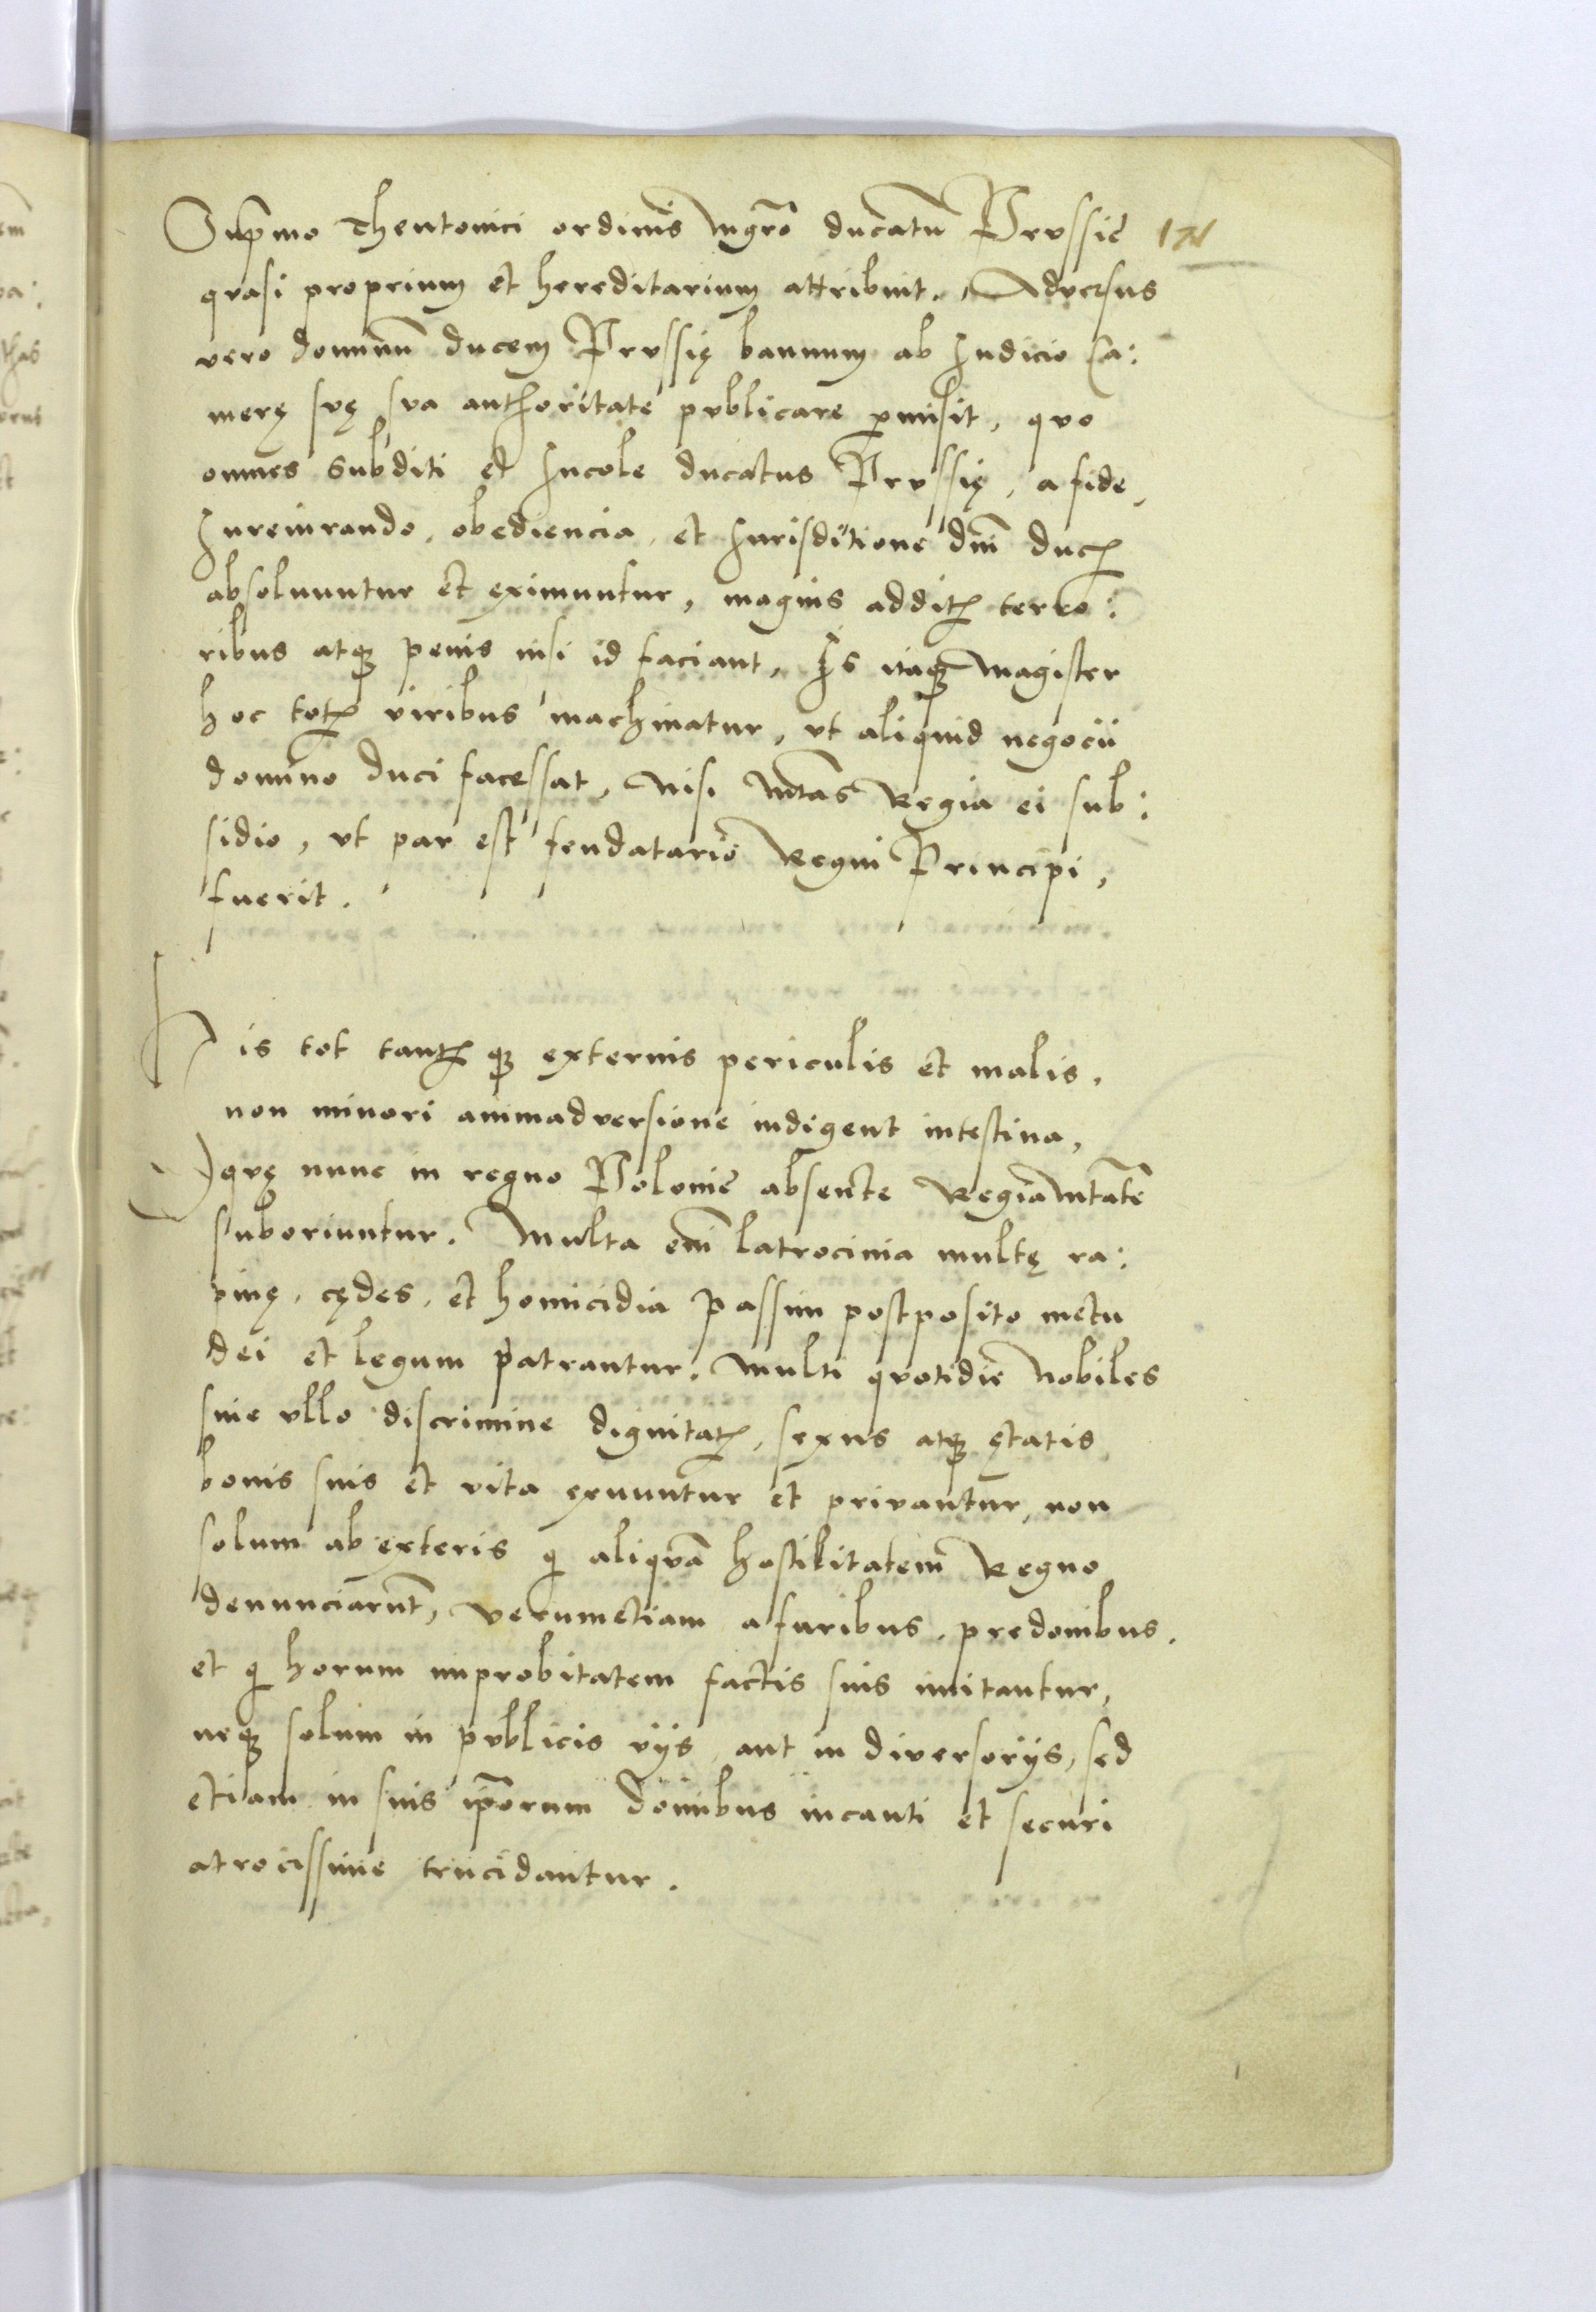 Supmo Theutonici ordinis Mgrō ducatū Prussie
quasi proprium et hereditarium attribuit. Adversus
vero dominū ducem Prussię bannum ab Iudicio Ca:
merę suę sua authoritate publicare pmisit, quo
omnes subditi et Incole ducatus Prussię, a fide,
Iureiurando, obediencia, et Iurisditione dnī ducis
absoluuntur et eximuntur, magnis additis terro:
ribus atq penis nisi id faciant, Is itaq Magister
hoc totis viribus machinatur, vt aliquid negocii
domino duci facessat, Nisi Mtas Regia ei sub:
sidio, vt par est feudatario Regni Principi,
fuerit.
His tot tantis q externis periculis et malis,
non minori animadversione indigent intestina,
quę nunc in regno Polonie absente Regia Mtate
suboriuntur. Multa em̄ latrocinia multę ra:
pinę, cędes, et homicidia passim postposito metu
dei et legum patrantur. Multi quotidie Nobiles
sine ullo discrimine dignitatis, sexus atq ętatis
bonis suis et vita exuuntur et privantur, non
solum ab exteris q aliquā hostilitatem Regno
denunciarūt, verumetiam a furibus, predonibus,
et q horum improbitatem factis suis imitantur,
neq solum in publicis vijs, aut in diversorijs, sed
etiam in suis ip̄orum domibus incauti et securi
atrocissime trucidantur.